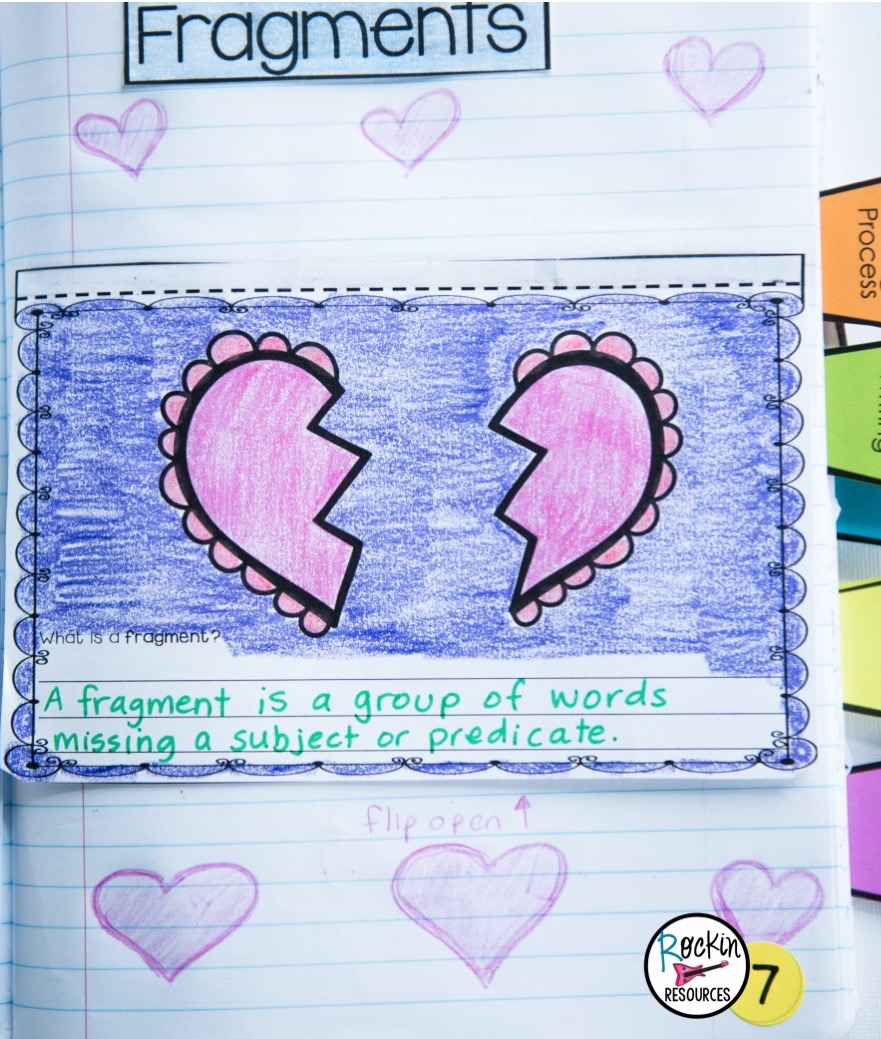 Fragments
Process
What is a fragment?
A fragment is a group of words
missing a subject or predicate.
flip open
Rockin
RESOURCES
7